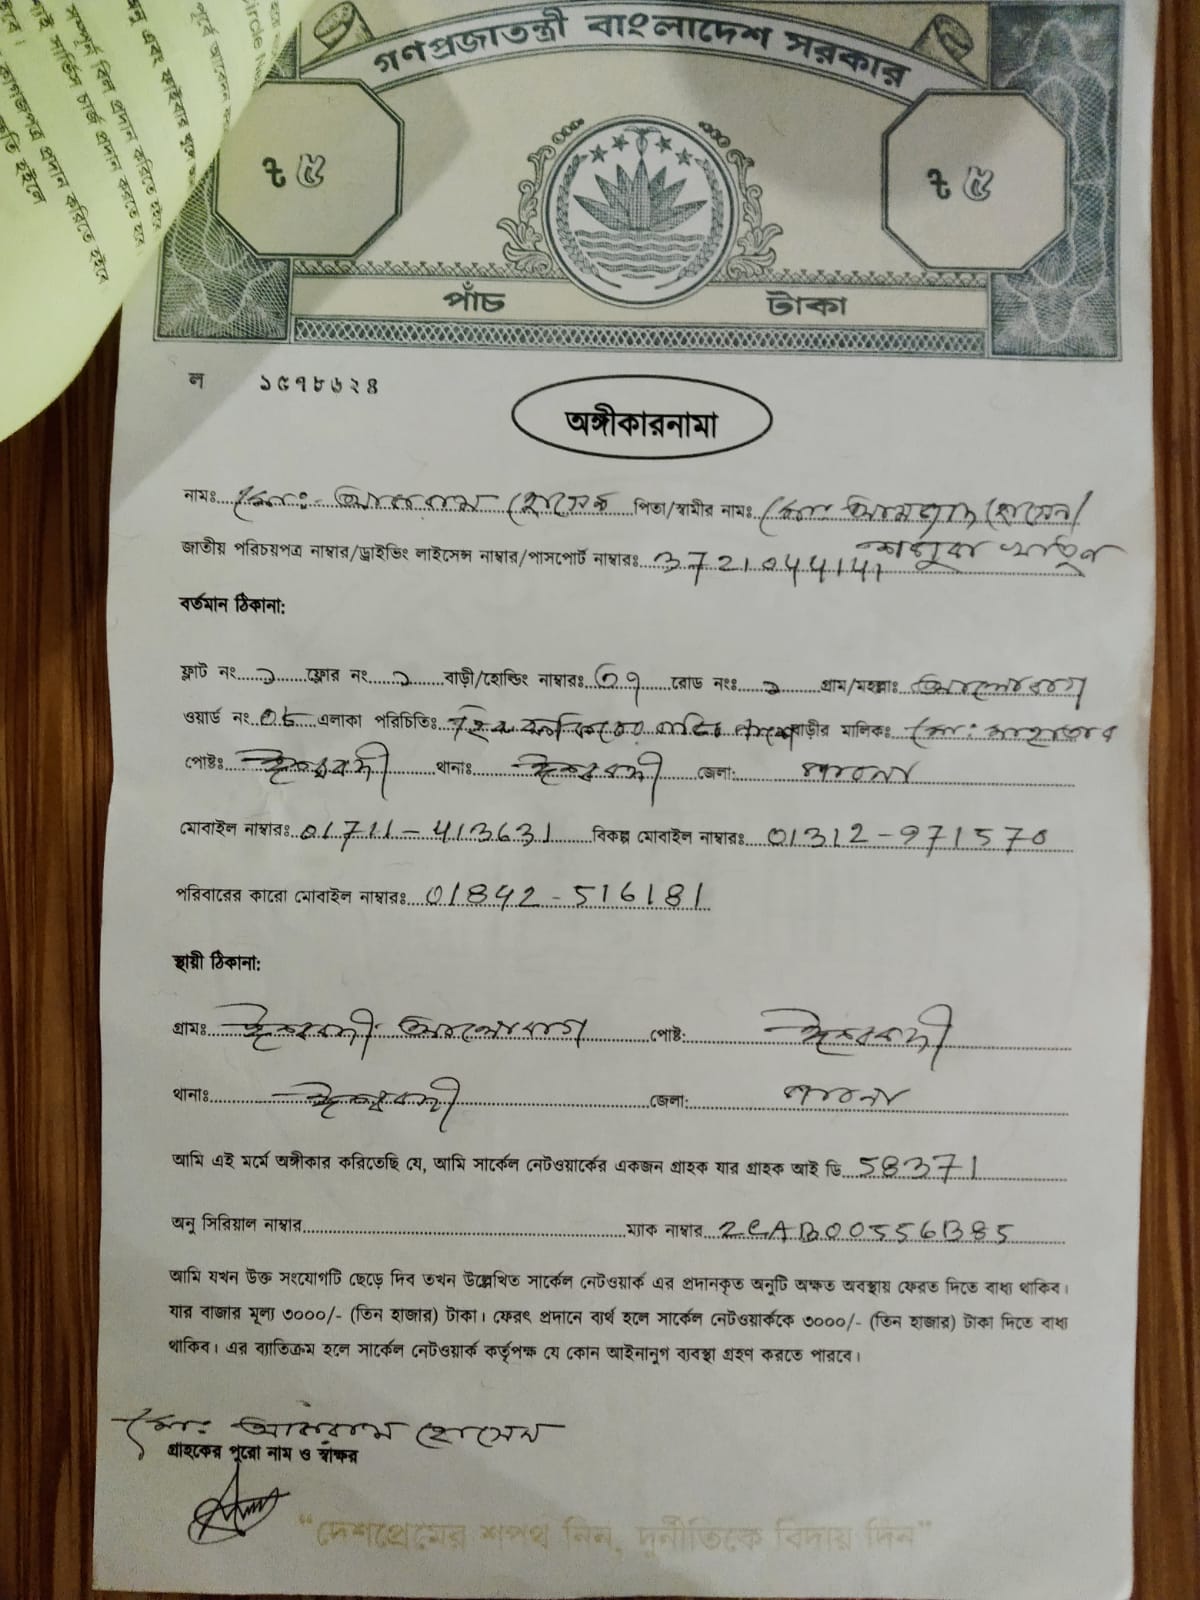 গণপ্রজাতন্ত্রী বাংলাদেশ সরকার
৳ ৫
৳ ৫
পাঁচ টাকা
ল ১৫৭৮৬২৪
অঙ্গীকারনামা
নামঃ মোঃ- আকরাম হোসেন পিতা/স্বামীর নামঃ মোঃ আমজাদ হোসেন/
খাতুন
জাতীয় পরিচয়পত্র নাম্বার/ড্রাইভিং লাইসেন্স নাম্বার/পাসপোর্ট নাম্বারঃ 3721044141
বর্তমান ঠিকানা:
ফ্লাট নং ১ ফ্লোর নং ১ বাড়ী/হোল্ডিং নাম্বারঃ ৩৭ রোড নংঃ ১ গ্রাম/মহল্লাঃ আলোবাগ
ওয়ার্ড নং 05 এলাকা পরিচিতিঃ বাড়ীর মালিকঃ মোঃ
পোষ্টঃ ঈশ্বরদী থানাঃ ঈশ্বরদী জেলা: পাবনা
মোবাইল নাম্বারঃ 01711-413631 বিকল্প মোবাইল নাম্বারঃ 01312-971570
পরিবারের কারো মোবাইল নাম্বারঃ 01842-516181
স্থায়ী ঠিকানা:
গ্রামঃ ঈশ্বরদী আলোবাগ পোষ্ট: ঈশ্বরদী
থানাঃ ঈশ্বরদী জেলা: পাবনা
আমি এই মর্মে অঙ্গীকার করিতেছি যে, আমি সার্কেল নেটওয়ার্কের একজন গ্রাহক যার গ্রাহক আই ডি 58371
অনু সিরিয়াল নাম্বার ম্যাক নাম্বার 2CAB00556B85
আমি যখন উক্ত সংযোগটি ছেড়ে দিব তখন উল্লেখিত সার্কেল নেটওয়ার্ক এর প্রদানকৃত অনুটি অক্ষত অবস্থায় ফেরত দিতে বাধ্য থাকিব।
যার বাজার মূল্য ৩০০০/- (তিন হাজার) টাকা। ফেরৎ প্রদানে ব্যর্থ হলে সার্কেল নেটওয়ার্ককে ৩০০০/- (তিন হাজার) টাকা দিতে বাধ্য
থাকিব। এর ব্যাতিক্রম হলে সার্কেল নেটওয়ার্ক কর্তৃপক্ষ যে কোন আইনানুগ ব্যবস্থা গ্রহণ করতে পারবে।
মোঃ আকরাম হোসেন
গ্রাহকের পুরো নাম ও স্বাক্ষর
"দেশপ্রেমের শপথ নিন, দুর্নীতিকে বিদায় দিন"